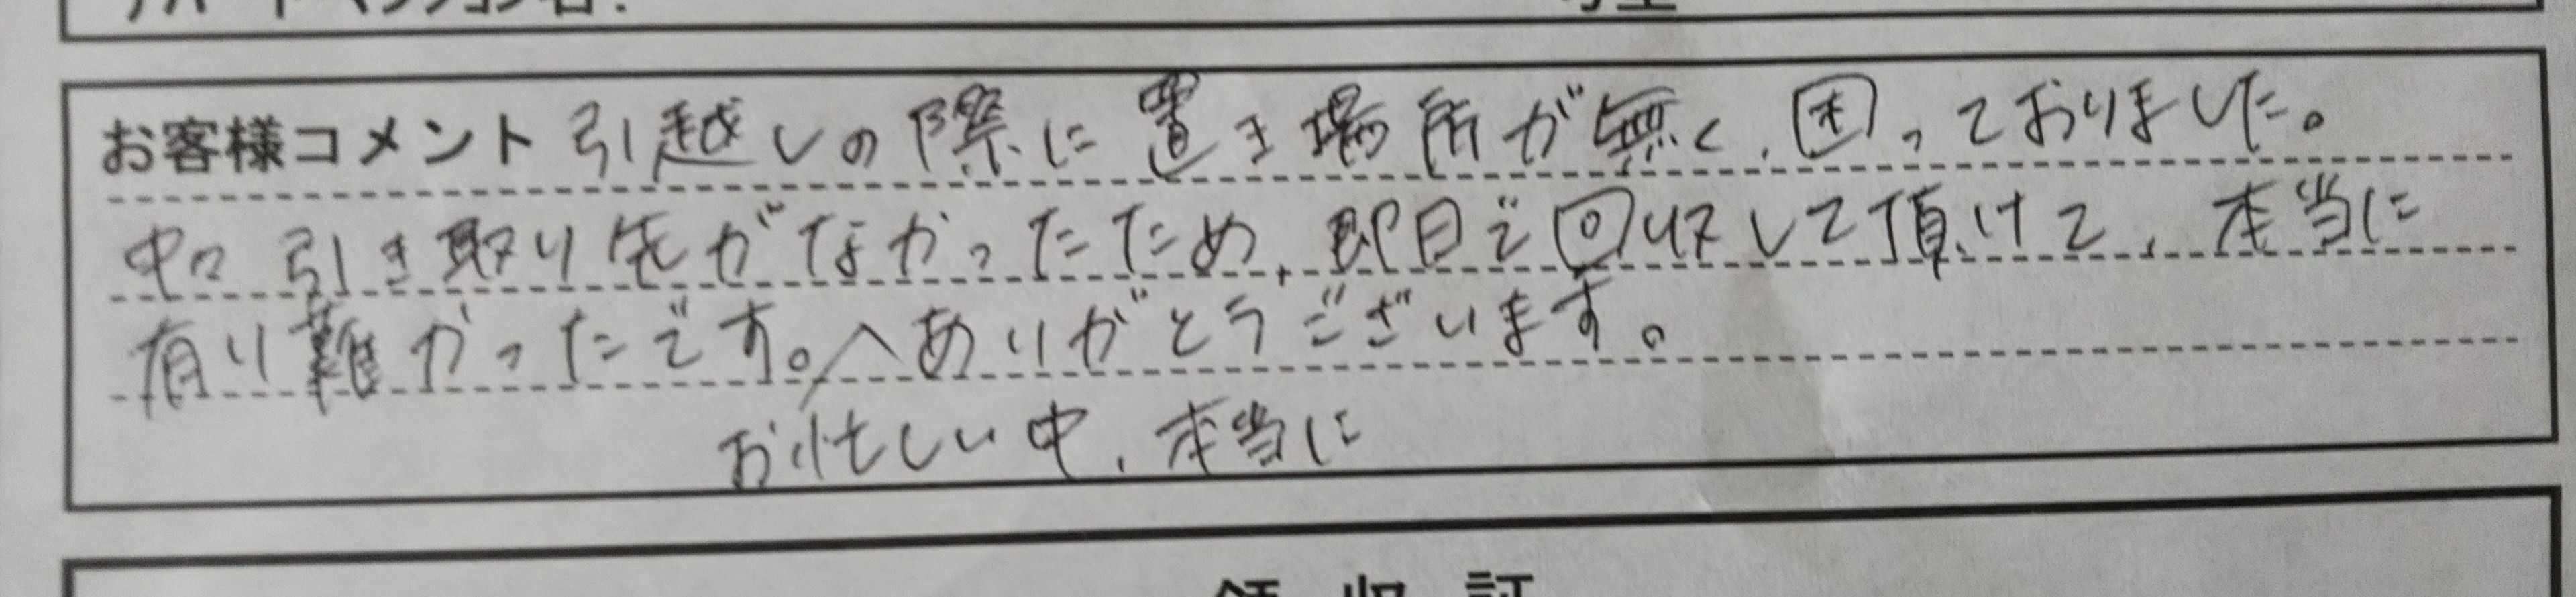 お客様コメント 引越しの際に置き場所が無く、困っておりました。
中々引き取り先がなかったため、即日で回収して頂けて、本当に
有り難かったです。ありがとうございます。
お忙しい中、本当に
領収証